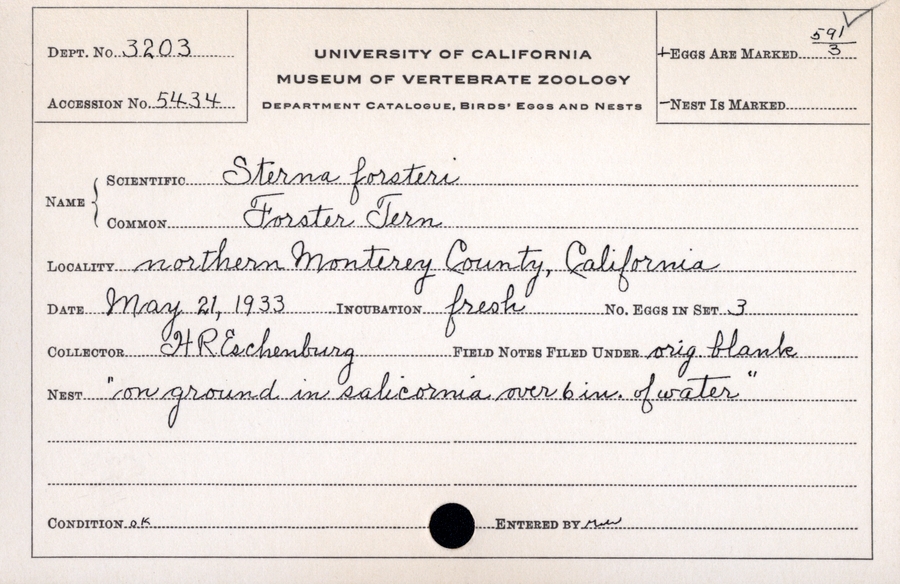 DEPT. No. 3203
ACCESSION No. 5434
UNIVERSITY OF CALIFORNIA
MUSEUM OF VERTEBRATE ZOOLOGY
DEPARTMENT CATALOGUE, BIRDS' EGGS AND NESTS
+EGGS ARE MARKED 591/3
-NEST IS MARKED
NAME
SCIENTIFIC Sterna forsteri
COMMON Forster Tern
LOCALITY northern Monterey County, California
DATE May 21, 1933 INCUBATION fresh No. EGGS IN SET 3
COLLECTOR H R Eschenburg FIELD NOTES FILED UNDER orig blank
NEST "on ground in salicornia over 6 in. of water"
CONDITION ok ENTERED BY